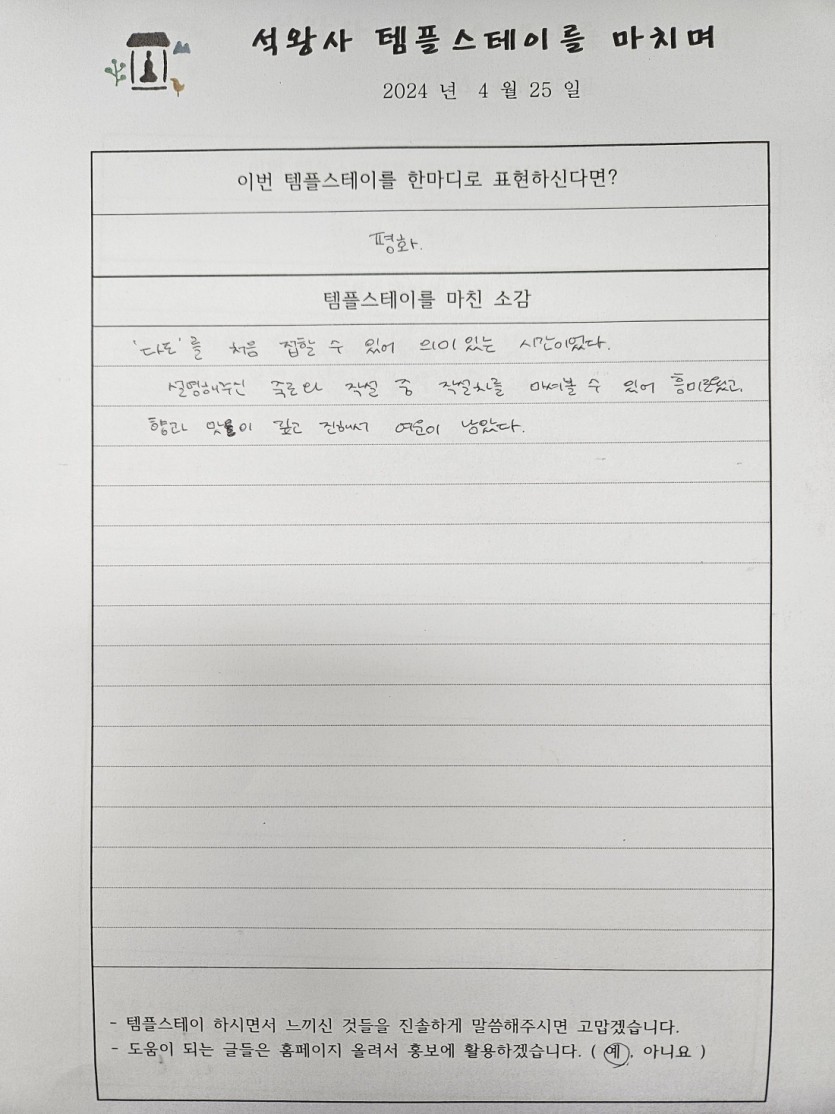 석왕사 템플스테이를 마치며
2024 년 4 월 25 일
이번 템플스테이를 한마디로 표현하신다면?
평화.
템플스테이를 마친 소감
'다도'를 처음 접할 수 있어 의미있는 시간이었다.
설명해주신 죽로와 작설 중 작설차를 마셔볼 수 있어 흥미로웠고,
향과 맛이 깊고 진해서 여운이 남았다.
- 템플스테이 하시면서 느끼신 것들을 진솔하게 말씀해주시면 고맙겠습니다.
- 도움이 되는 글들은 홈페이지 올려서 홍보에 활용하겠습니다. ( 예, 아니요 )